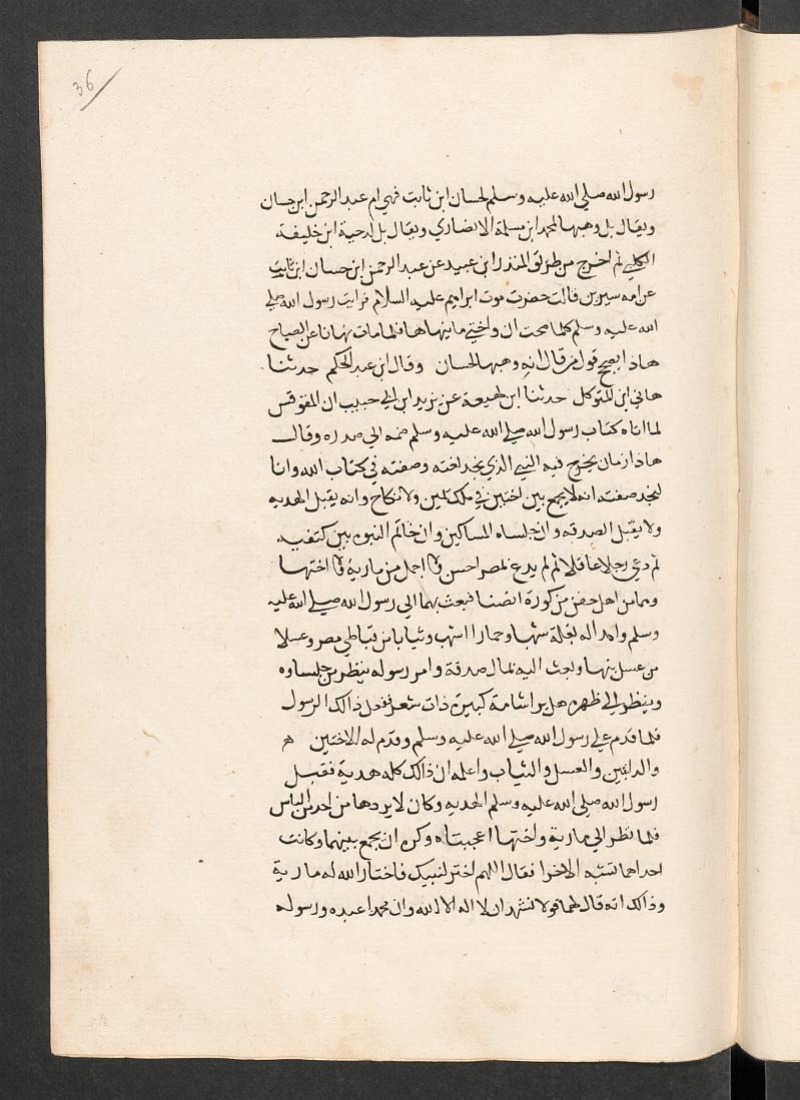 36
رسول الله صلي الله عليه وسلم لحسان ابن ثابت فهي ام عبد الرحمن ابن حسان
ويقال بل وهبها لمحمد ابن مسلمة الانصاري ويقال بل لدحية ابن خليفة
الكلبي ثم اخرج من طريق المنذر ابن عبيد عن عبد الرحمن ابن حسان ابن ثابت
عن امه سيرين قالت حضرت موت ابراهيم عليه السلام فرايت رسول الله صلي
الله عليه وسلم كلما صحت ان واختي ما ينهاها فلما مات نهانا عن الصياح
هاذا يصحح قول من قال انه وهبها لحسان وقال ابن عبد الحكم حدثنا
هاني ابن المتوكل حدثنا ابن لهيعة عن يزيد ابن ابي حبيب ان المقوقس
لما اتاه كتاب رسول الله صلي الله عليه وسلم ضمه الي صدره وقال
هاذا زمان يخرج فيه النبي الذي نجد نعته وصفته في كتاب الله وانا
لنجد صفته انه لا يجمع بين اختين في ملك يمين ولا نكاح وانه يقبل الهدية
ولا يقبل الصدقه وان جلساه المساكين وان خاتم النبوه بين كتفيه
ثم دعي رجلا عاقلا ثم لم يدع بمصر احسن ولا اجمل من مارية ولا اختها
وهما من اهل حفن من كورة انصنا فبعث بهما الي رسول الله صلي الله عليه
وسلم واهدا له بغلة شهبا وحمارا اشهب وثيابا من قباطي مصر وعسلا
من عسل بنها وبعث اليه بمال صدقة وامر رسوله ينظر من جلساوه
وينظر الي ظهره هل يرا شامة كبيرة ذات شعر ففعل ذالك الرسول
فلما قدم علي رسول الله صلي الله عليه وسلم وقدم له الاختين ه
والدابتين والعسل والثياب واعلمه ان ذالك كله هدية فقبل
رسول الله صلي الله عليه وسلم الهدية وكان لا يردها من احد من الناس
فلما نظر الي مارية واختها اعجبتاه وكره ان يجمع بينهما وكانت
احداهما تشبه الاخرا فقال اللهم اختر لنبيك فاختار الله له مارية
وذالك انه قال لهما قولا نشهد ان لا اله الا الله وان محمدا عبده ورسوله